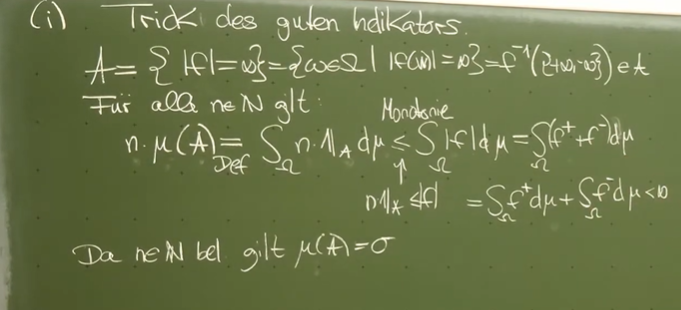 (i) Trick des guten Indikators.
A = { |f| = ∞} = {ω∈Ω | |f(ω)| = ∞} = f⁻¹({+∞, -∞}) ∈ A
Für alle n∈ℕ gilt: Monotonie
n·μ(A) = ∫_Ω n·1_A dμ ≤ ∫_Ω |f| dμ = ∫_Ω (f⁺ + f⁻) dμ
Def ↑
n1_A ≤ |f| = ∫_Ω f⁺ dμ + ∫_Ω f⁻ dμ < ∞
Da n∈ℕ bel. gilt μ(A) = 0